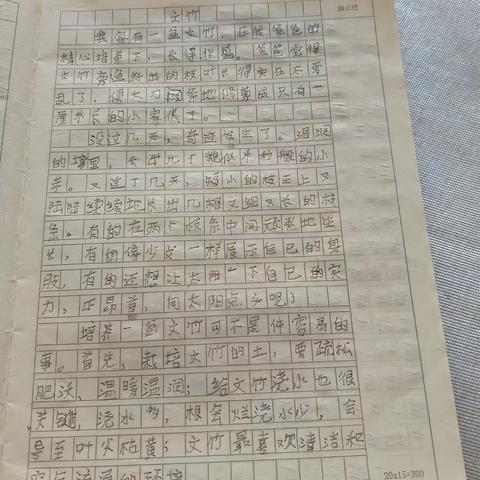 文竹
我家有一盆文竹,在我爸爸的
精心培养下,长得很盛。爸爸觉得
文竹旁逸斜出的枝叶长得实在太零
乱了,便大刀阔斧地修剪的只有一
厘米长的小家伙了。
没过几天,奇迹发生了。湿润
的壤里,
芽。又过了几天,矮小的枝干上又
陆陆续续地长出几根又细又长的枝
条。有的在两个枝条中间顽强地生
长,有的像少女一样展示自己的身
肢,有的还想让太阳一下自己的实
力,正昂首,向太阳点头呢!
培养一盆文竹可不是件容易的
事。首先,栽培文竹的土,要疏松
肥沃、温暖湿润;给文竹浇水也很
关键,浇水多,根会烂浇水少,会
导至叶尖枯黄;文竹最喜欢清洁和
空气流通的环境
20x15=300